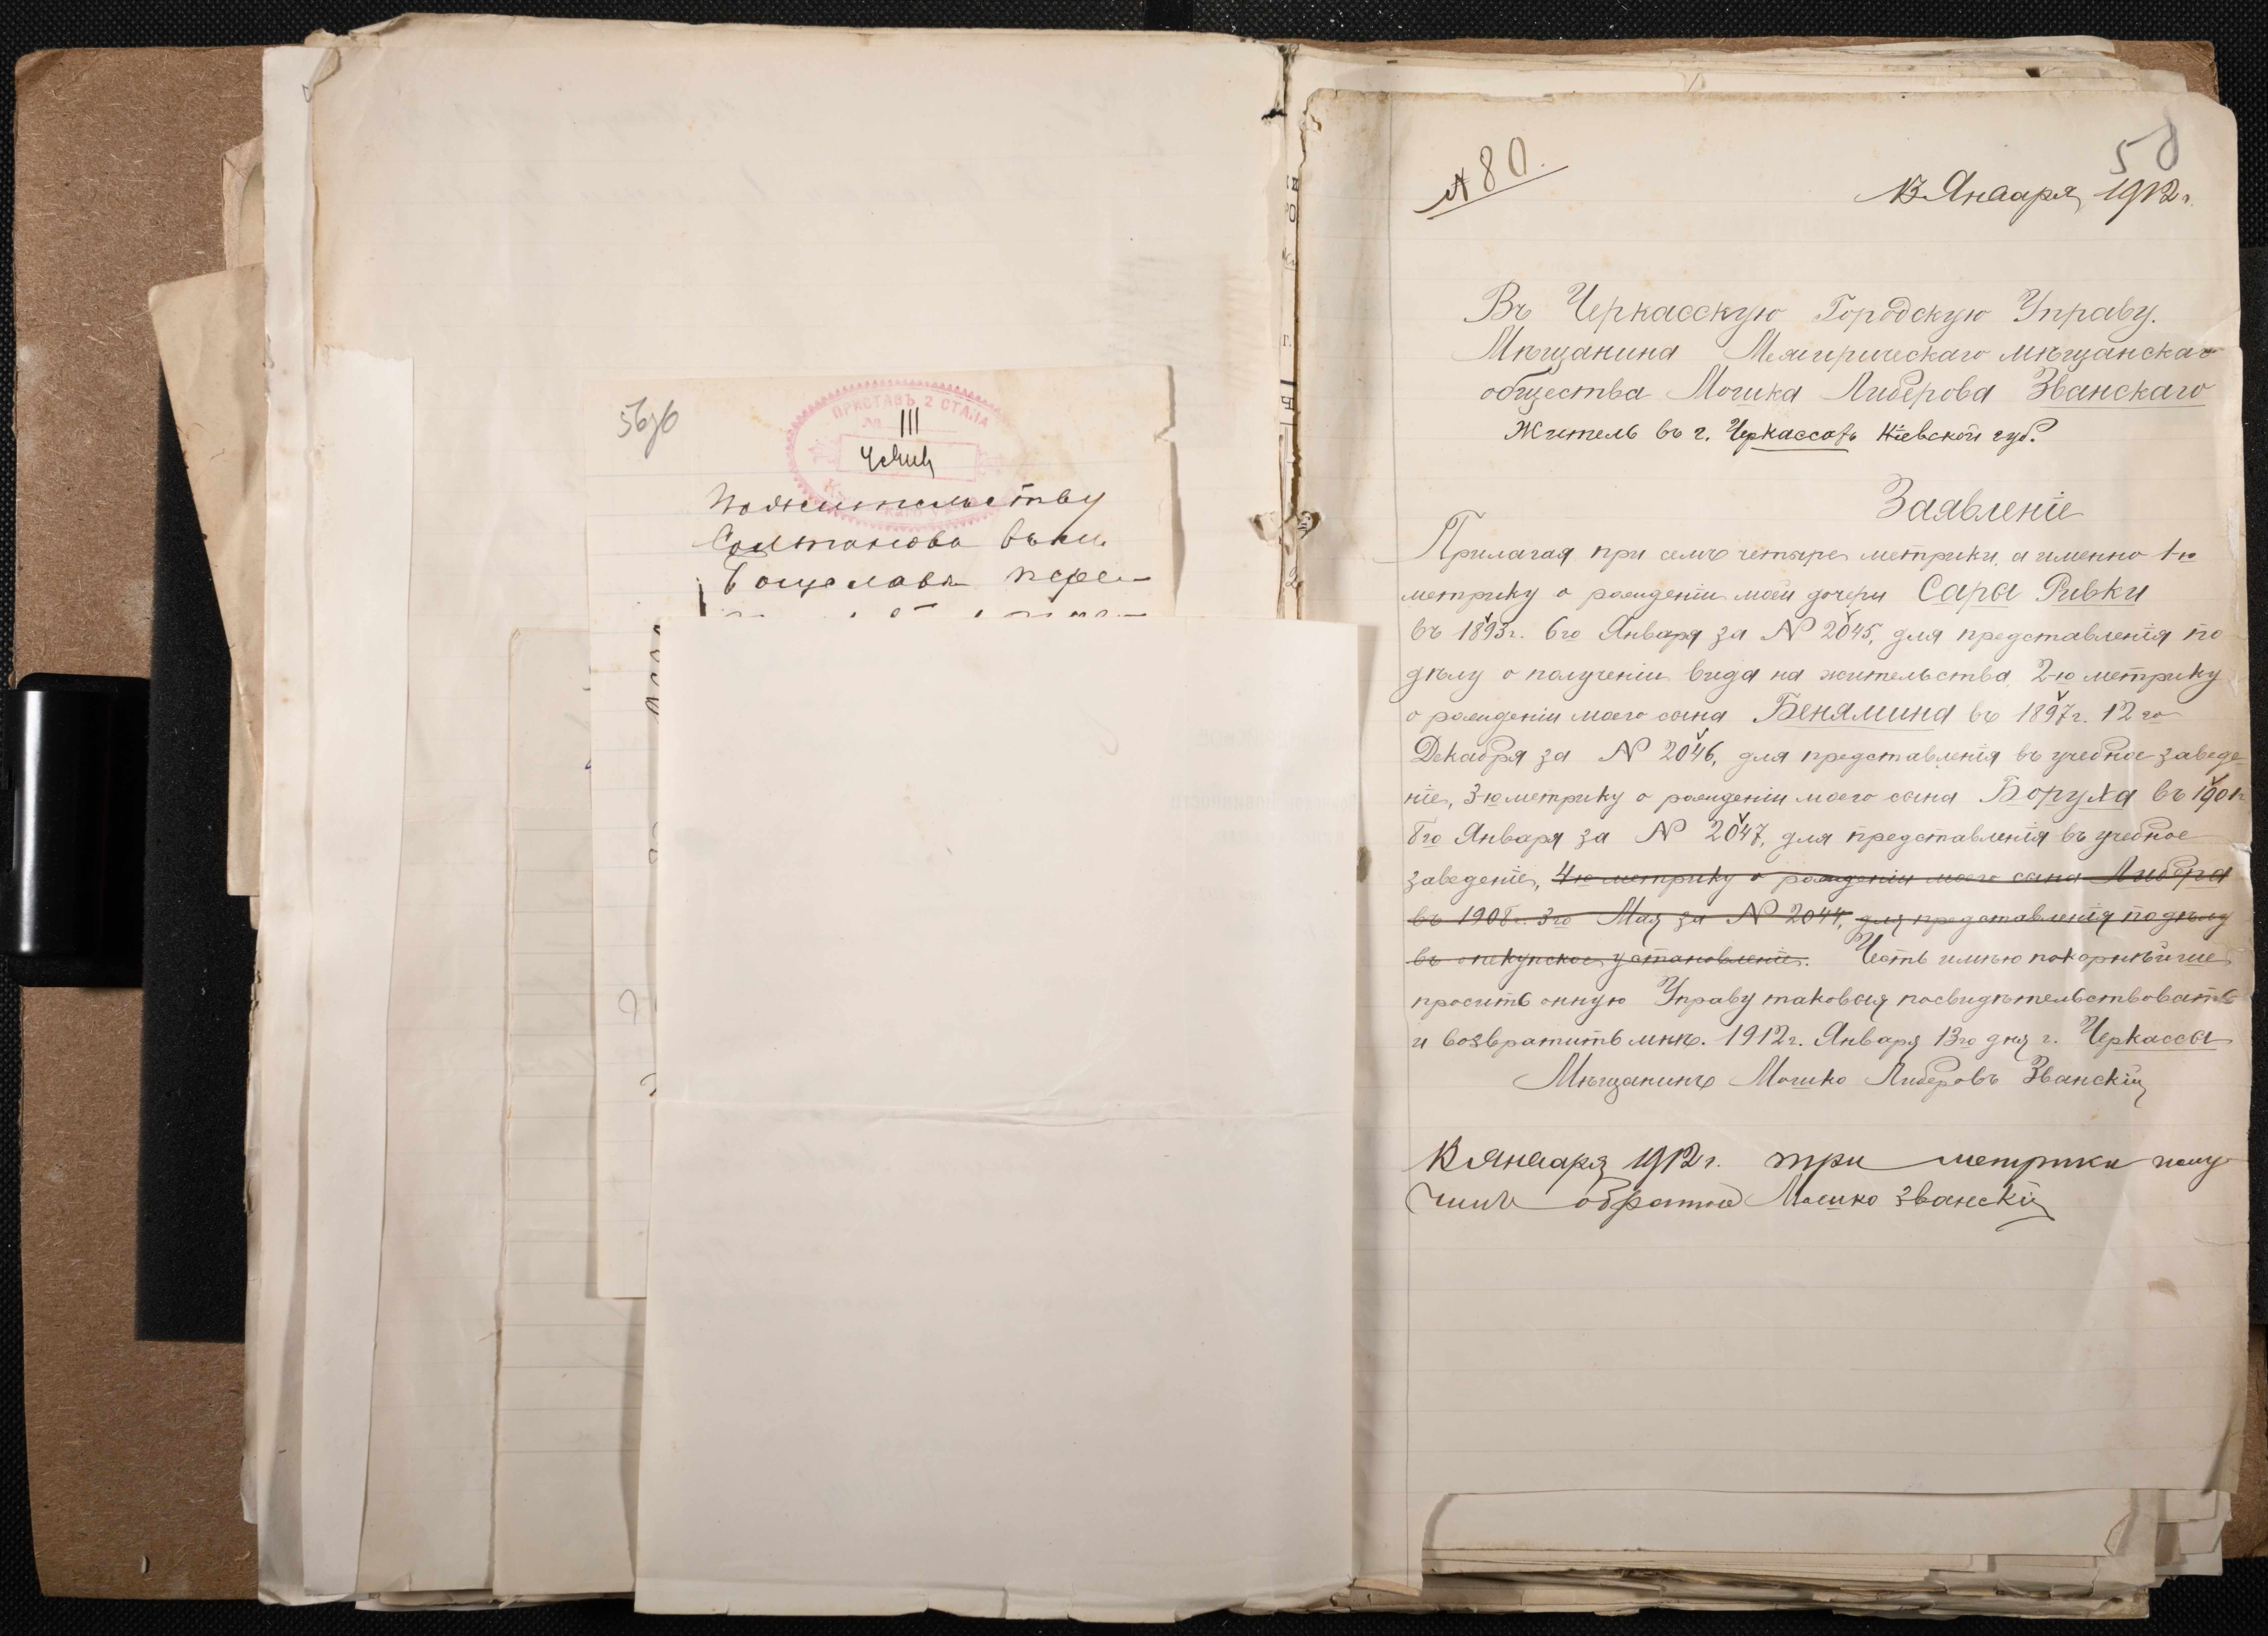 56об
ПРИСТАВЪ 2 СТАНА
III
по жительству
Богуслава пере-
58
№ 80.
13 Января 1912 г.
Въ Черкасскую Городскую Управу.
Мѣщанина Межиричскаго мѣщанскаго
общества Мошка Либерова Званскаго
Житель въ г. Черкассахъ Кіевской губ.
Заявленіе
Прилагая при семъ четыре метрики, а именно 1-ю
метрику о рожденіи моей дочери Сара Ривки
въ 1893 г. 6го Января за № 2045, для представленія по
дѣлу о полученіи вида на жительства, 2-ю метрику
о рожденіи моего сына Бенямина въ 1897 г. 12 го
Декабря за № 2046, для представленія въ учебное заведе-
ніе, 3-ю метрику о рожденіи моего сына Боруха въ 1901 г.
8го Января за № 2047, для представленія въ учебное
заведеніе, 4-ю метрику о рожденіи моего сына Либера
въ 1908 г. 3го Мая за № 2044, для представленія по дѣлу
въ опекунское установленіе. Честь имѣю покорнѣйше
просить онную Управу таковыя посвидѣтельствовать
и возвратить мнѣ. 1912 г. Января 13го дня г. Черкассы
Мѣщанинъ Мошко Либеровъ Званскій
13 Января 1912 г. три метрики полу
чилъ обратно Мошко Званскій